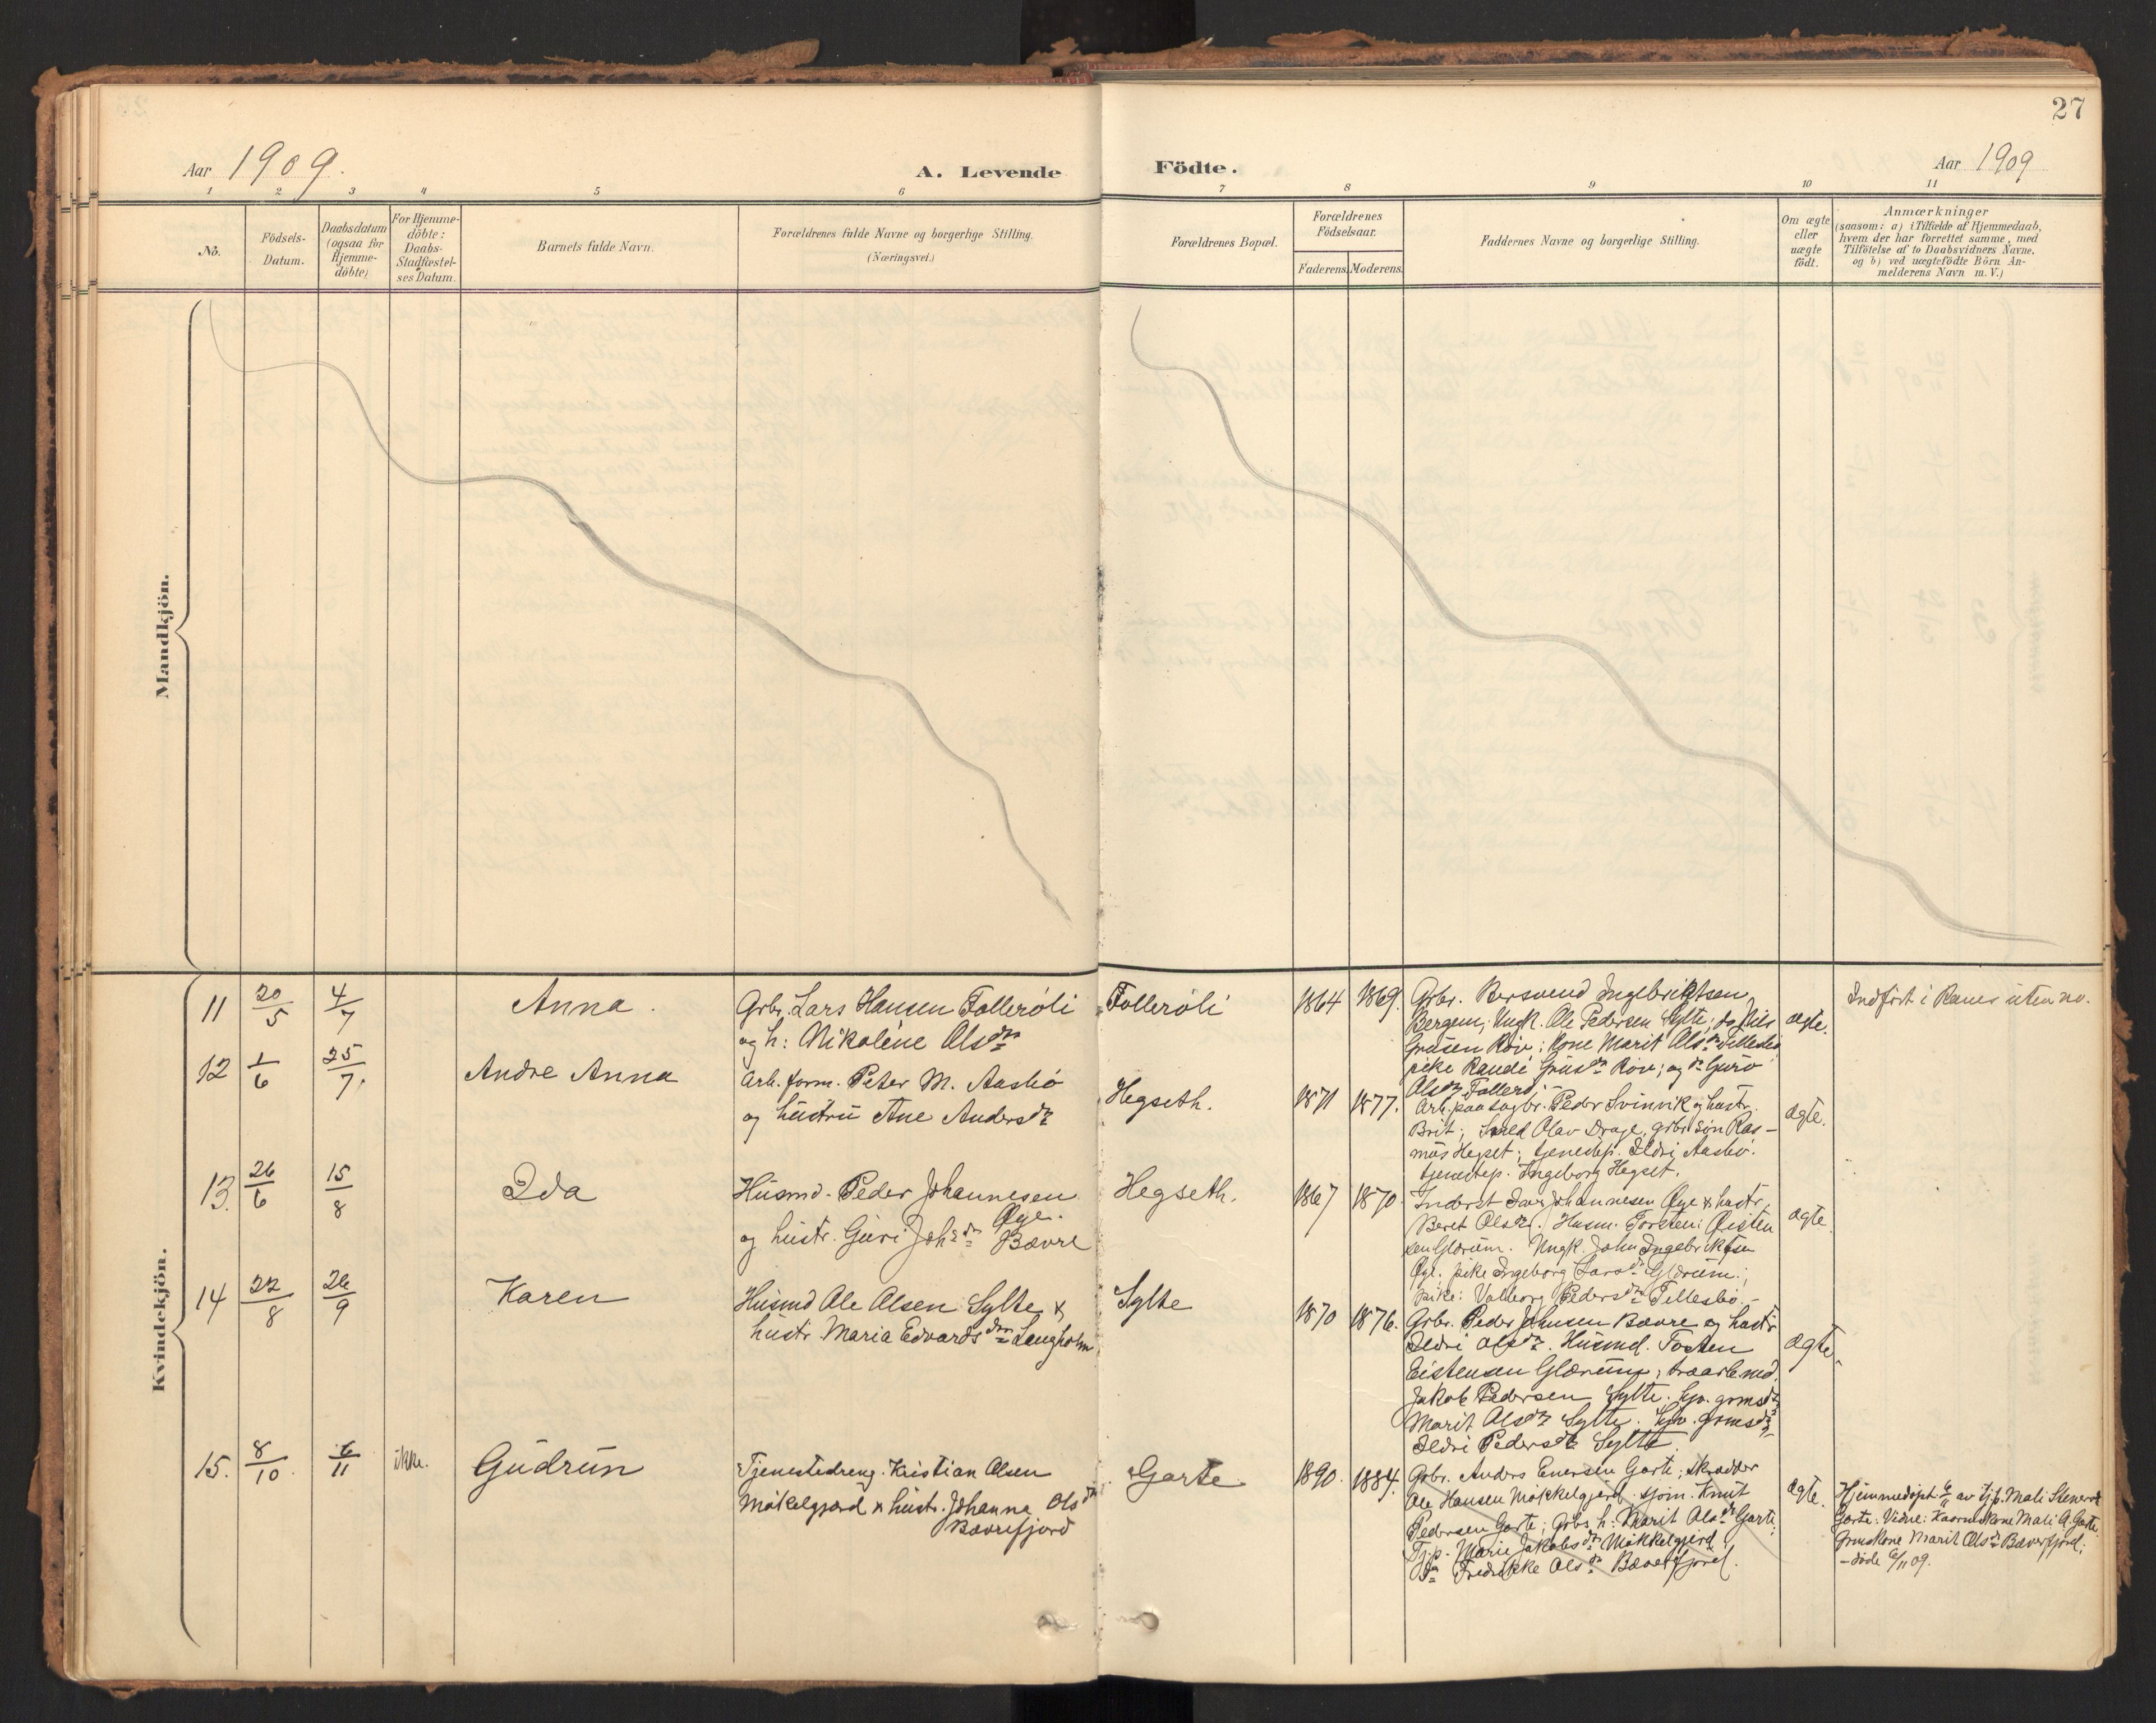 27
Aar 1909.
A. Levende
Födte.
Aar 1909
1 2 3 4 5 6 7 8 9 10 11
No.
Födsels-
Datum.
Daabsdatum
(ogsaa for
Hjemme-
döbte)
For Hjemme-
döbte:
Daabs-
Stadfæstel-
ses Datum.
Barnets fulde Navn.
Forældrenes fulde Navne og borgerlige Stilling.
(Næringsvei.)
Forældrenes Bopæl.
Forældrenes
Födselsaar.
Faderens.
Moderens.
Faddernes Navne og borgerlige Stilling.
Om ægte
eller
uægte
födt.
Anmærkninger
(saasom: a) i Tilfælde af Hjemmedaab,
hvem der har forrettet samme, med
Tilföielse af to Daabsvidners Navne.
og b) ved uægtefödte Börn An-
melderens Navn m. V.)
Mandkjön.
Kvindekjön.
11
20/5
4/7
Anna.
Grbr. Lars Hansen Folleröli
og h: Nikoline Olsdtr
Folleröli
1864
1869.
Grbr. Bersvend Ingebriktsen
Bergem; Ungk. Ole Pedersen Sylte; do Nils
Grusen Röv; Kone Marit Olsdtr Tellesbö
pike Randi Grusdtr Röv; og do Guro
Olsdtr Folleröli
ægte.
Indfört i Ranes uten no.
12
1/6
25/7.
Andre Anna
Arb. form. Peter M. Aasbö
og hustru Ane Andersdtr
Hegseth.
1871
1877.
Arb. paa sagbr. Peder Svinvik og hustr.
Brit; Smed Olav Drage, grbr. sön Ras-
mus Hegset; tjenestep. Ildri Aasbö.
tjenestep. Ingeborg Hegset.
ægte.
13.
26/6
15/8
Ida
Husmd. Peder Johannesen
Öye.
og hustr. Guri Johsdtr Bævre
Hegseth.
1867
1870.
Inderst Johannesen Öye & hustr.
Beret Olsdtr. Husm. Torsten Eisten
sen Glærum. Ungk. John Ingebriktsen
Öye. pike Ingeborg Larsdtr Glærum;
pike: Valborg Pedersdtr Tellesbö.
ægte
14
22/8
26/9
Karen
Husmd Ole Olsen Sylte &
hustr. Maria Edvardsdtr Langholm
Sylte
1870
1876.
Grbr. Peder Johnsen Bævre og hustr
Ildri Olsdtr. Husmd. Tosten
Eistensen Glærum;
Jakob Pedersen Sylte.
Marit Olsdtr Sylte.
Ildri Pedersdtr Sylte.
ægte.
15.
8/10
6/11
ikke.
Gudrun
Tjenestedreng. Kristian Olsen
Mökelgjærd & hustr. Johanna Olsdtr
Bævrefjord
Garte
1890.
1884.
Grbr. Anders Enersen Garte; Skrædder
Ole Hansen Mökkelgjerd. sjöm. Knut
Pedersen Garte; Grbs. h: Marit Olsdtr Garte;
Tjp. Marie Jakobsdtr Mökkelgjerd
do Fredrikke Olsdtr Bæverfjord.
ægte.
Hjemmedöpt 6/11 av tjp. Mali Stenersd
Garte. Vidne: Kaarmkone Mali A. Garte
Grmskone Marit Olsdtr Bæverfjord;
– döde 6/11 09.